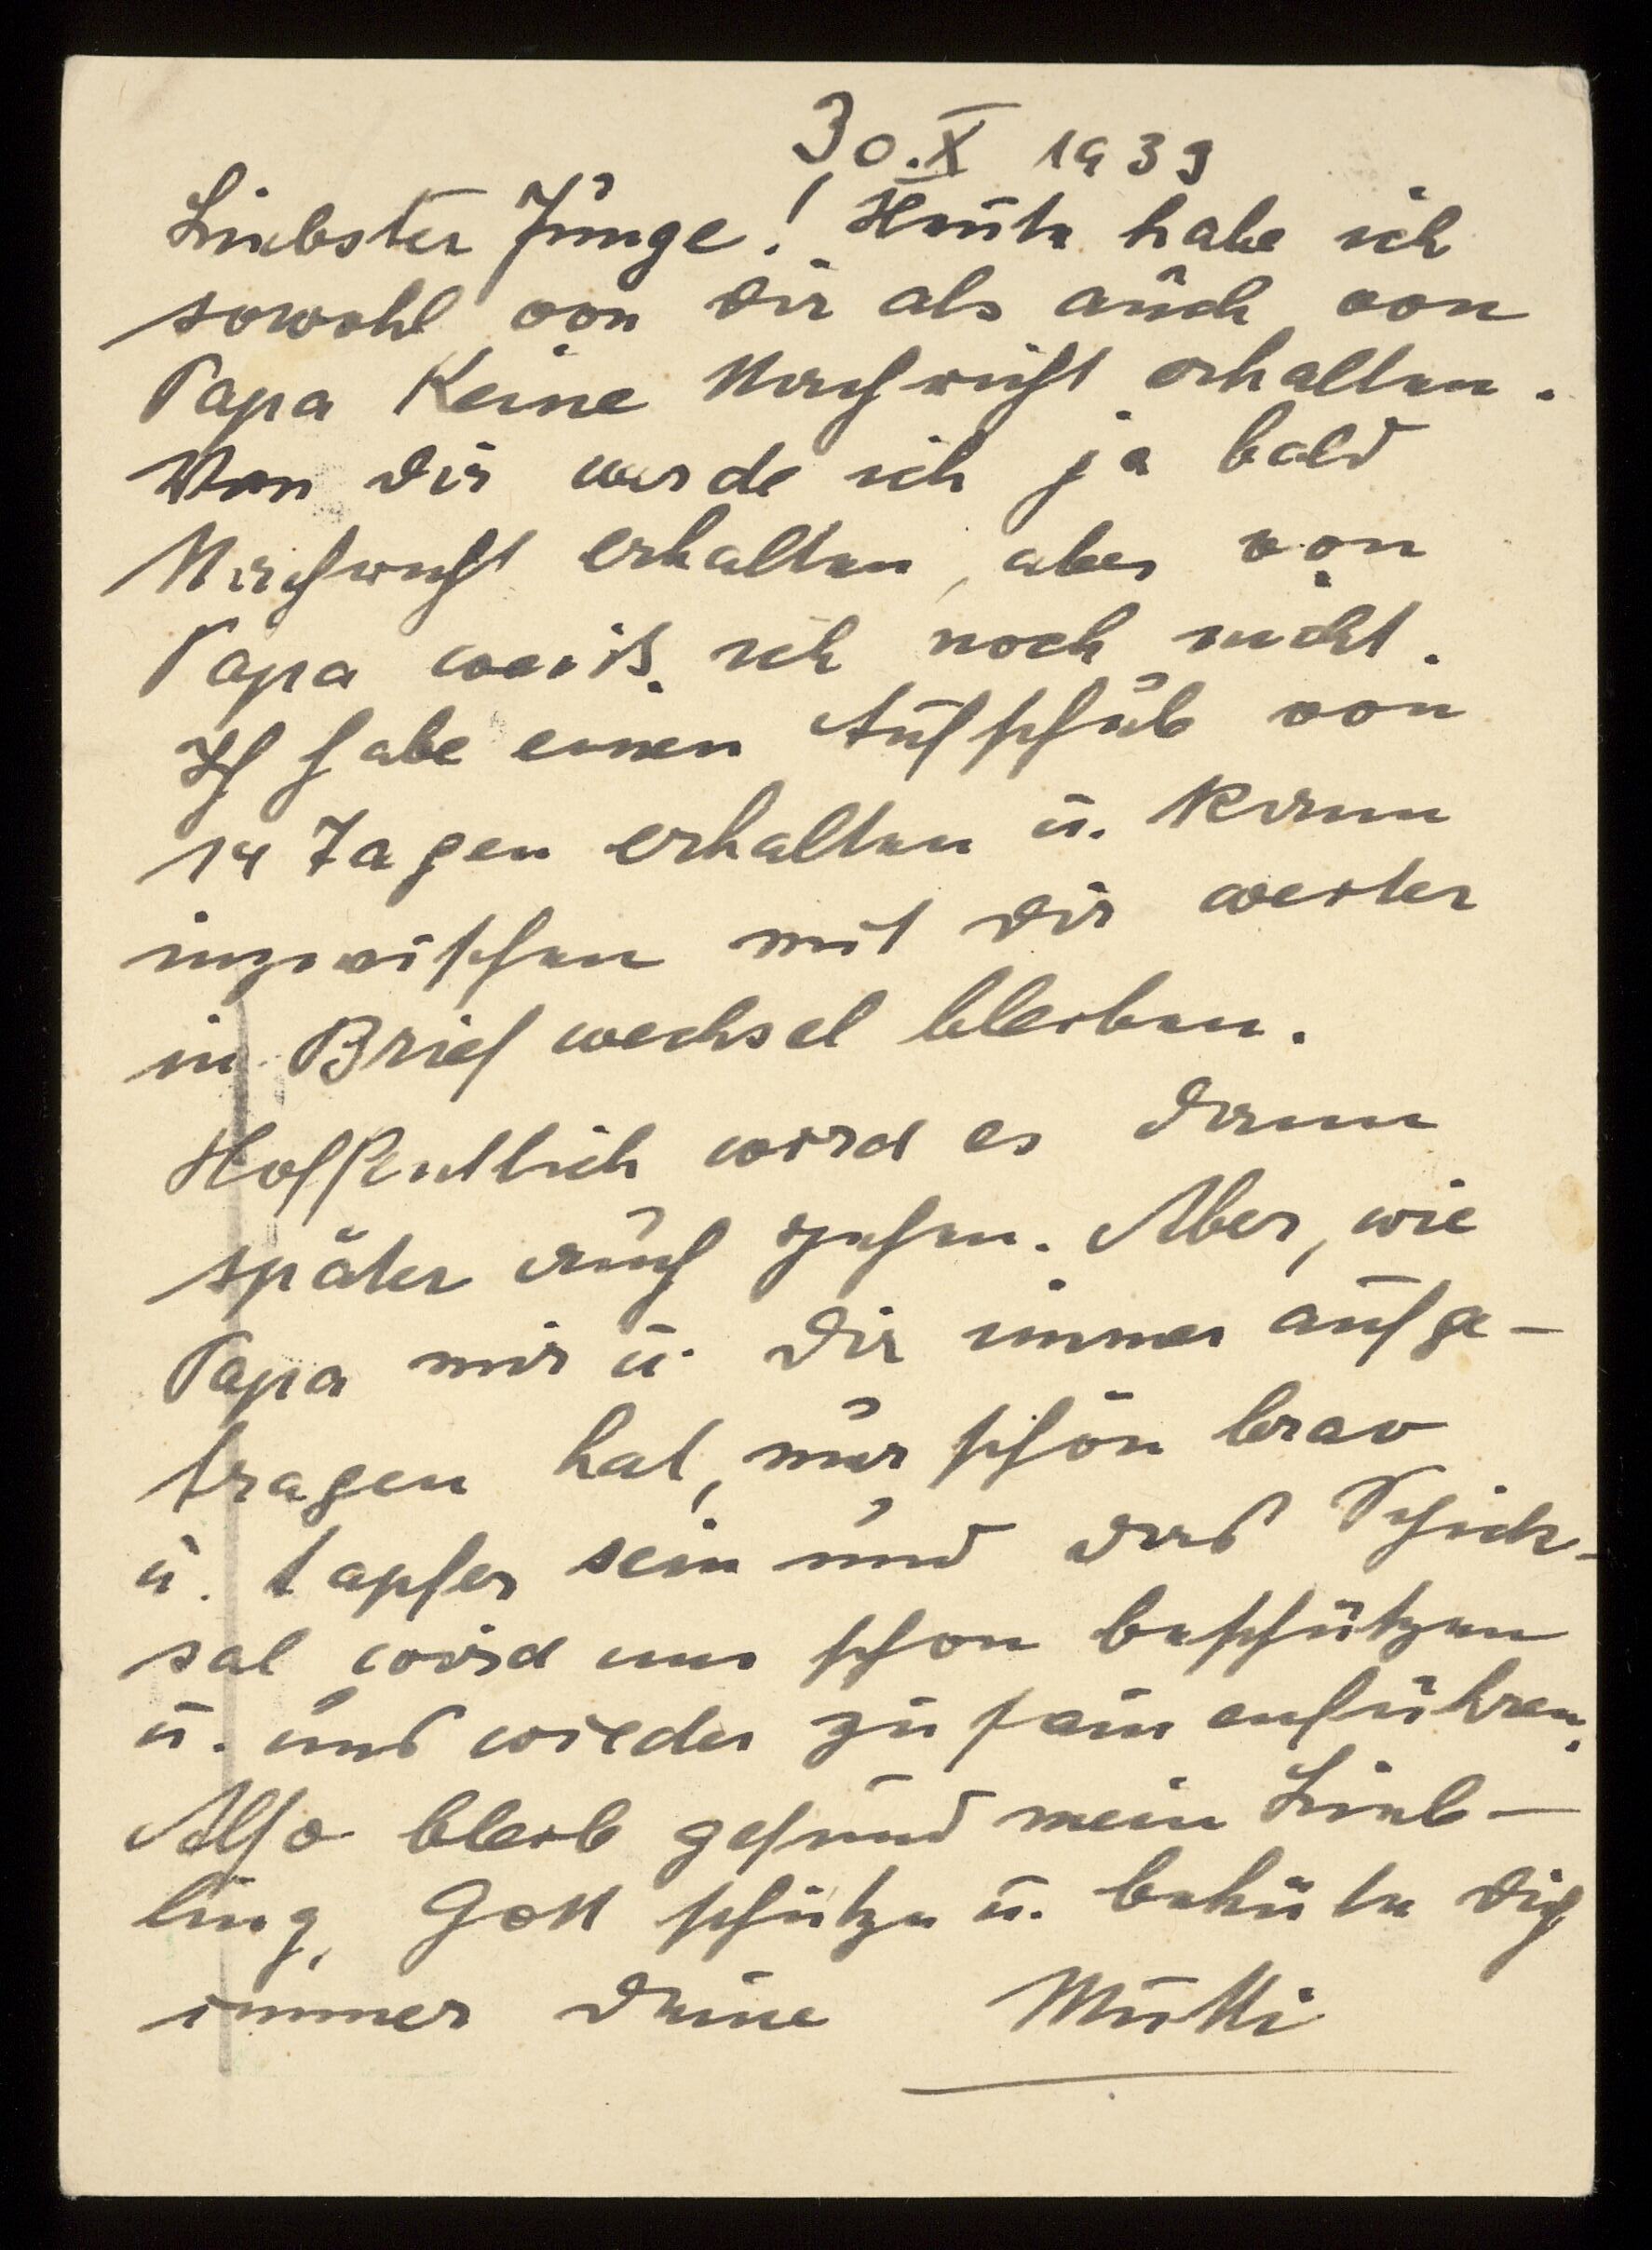 30.X 1939
Liebster Junge! Heute habe ich
sowohl von Dir als auch von
Papa keine Nachricht erhalten.
Von Dir werde ich ja bald
Nachricht erhalten, aber von
Papa weiß ich noch nicht.
Ich habe einen Aufschub von
14 Tagen erhalten u. kann
inzwischen mit Dir weiter
in Briefwechsel bleiben.
Hoffentlich wird es dann
später auch gehen. Aber, wie
Papa mir u. Dir immer aufge-
tragen hat, nur schön brav
u. tapfer sein und das Schick-
sal wird uns schon beschützen
u. uns wieder zusammenführen.
Also bleib gesund mein Lieb-
ling, Gott schütze u. behüte Dich
immer Deine Mutti